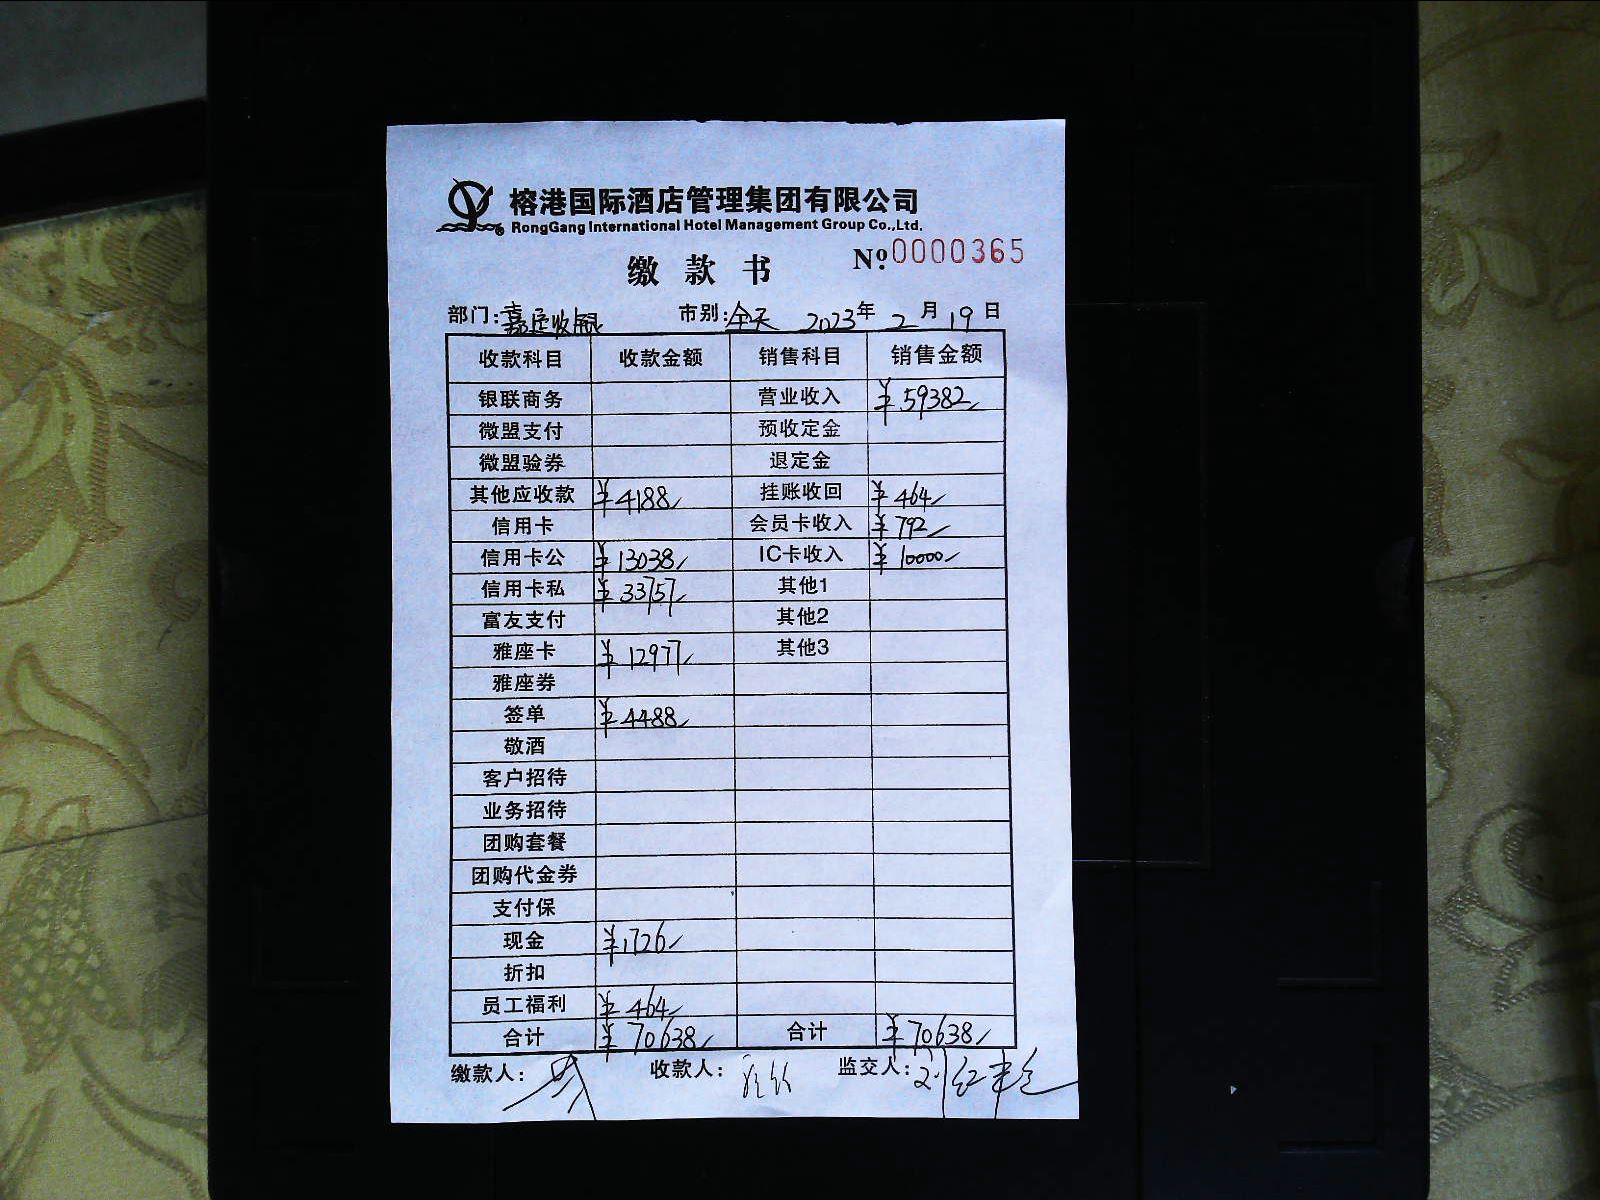 榕港国际酒店管理集团有限公司
RongGang International Hotel Management Group Co.,Ltd.
缴款书 Nº:0000365
部门: 嘉 收银 市别: 全天 2023年2月19日
收款科目 收款金额 销售科目 销售金额
银联商务 营业收入 ¥59382
微盟支付 预收定金
微盟验券 退定金
其他应收款 ¥4188 挂账收回 ¥464
信用卡 会员卡收入 ¥792
信用卡公 ¥13038 IC卡收入 ¥10000
信用卡私 ¥33757 其他1
富友支付 其他2
雅座卡 ¥12977 其他3
雅座券
签单 ¥4488
敬酒
客户招待
业务招待
团购套餐
团购代金券
支付保
现金 ¥1726
折扣
员工福利 ¥464
合计 ¥70638 合计 ¥70638
缴款人: 收款人: 监交人: